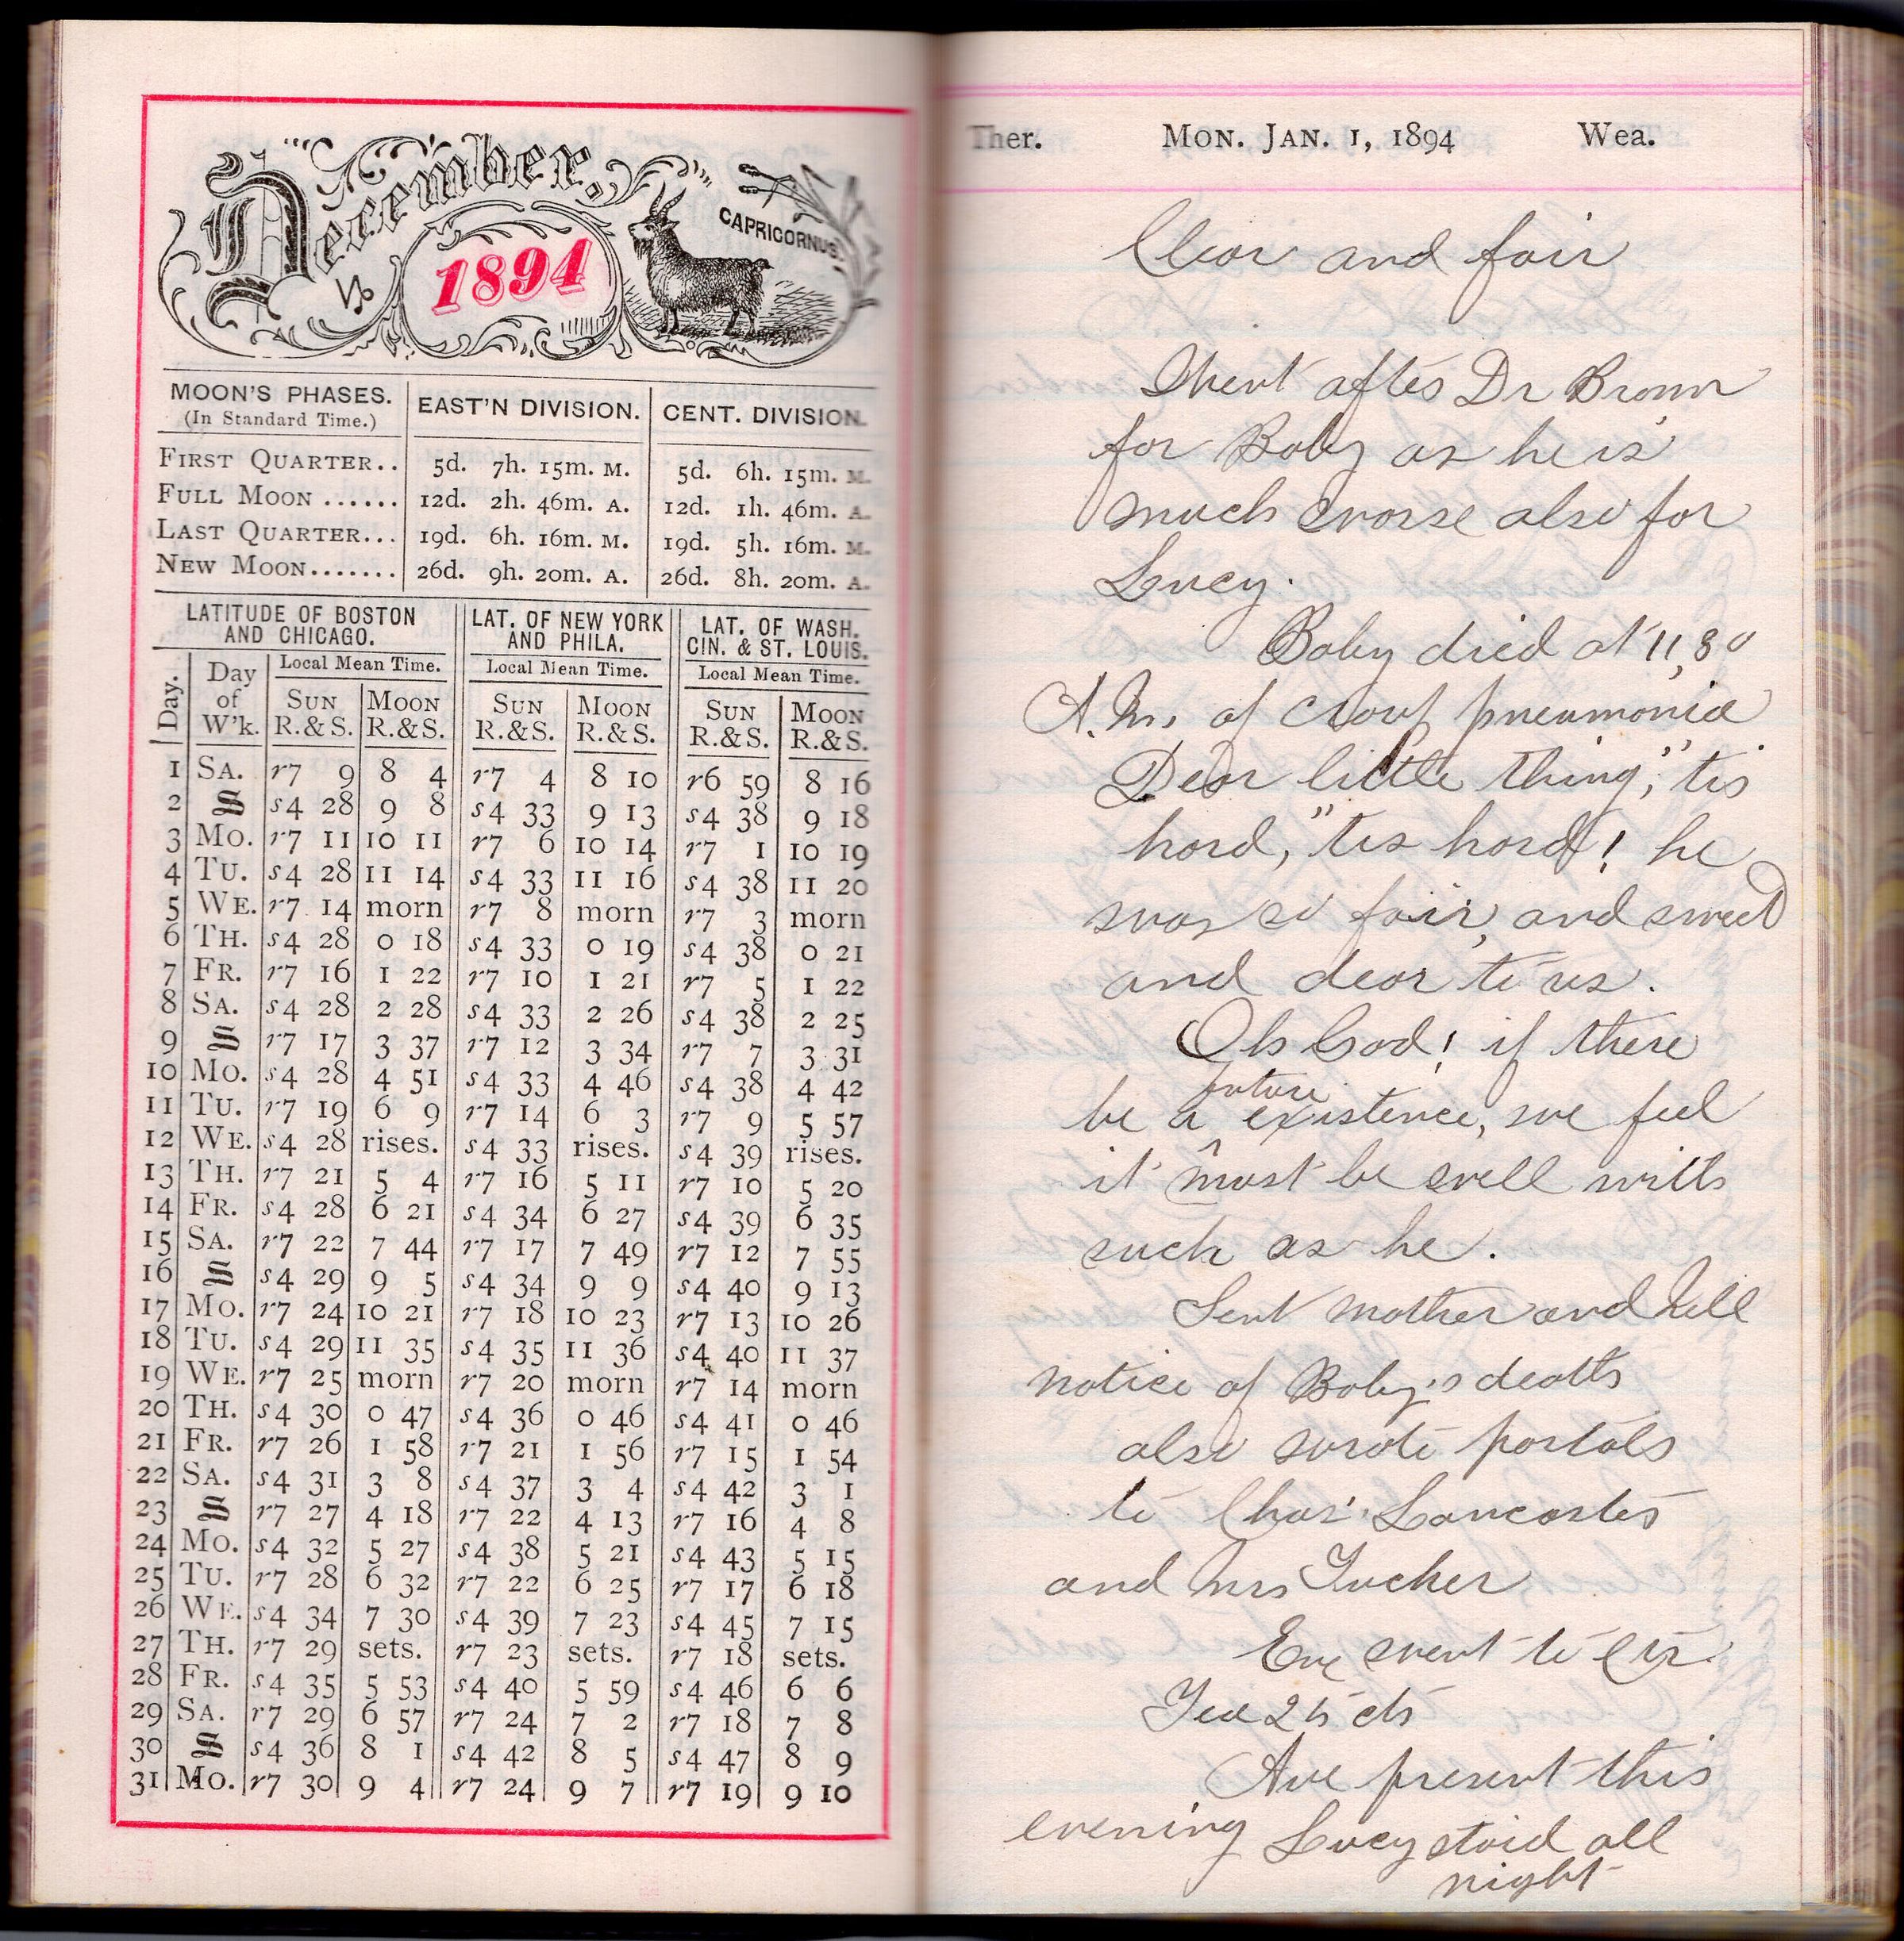 December,
1894
CAPRICORNUS.
MOON'S PHASES. EAST'N DIVISION. CENT. DIVISION.
(In Standard Time.)
FIRST QUARTER.. 5d. 7h. 15m. M. 5d. 6h. 15m. M.
FULL MOON ...... 12d. 2h. 46m. A. 12d. 1h. 46m. A.
LAST QUARTER... 19d. 6h. 16m. M. 19d. 5h. 16m. M.
NEW MOON....... 26d. 9h. 20m. A. 26d. 8h. 20m. A.
LATITUDE OF BOSTON LAT. OF NEW YORK LAT. OF WASH.
AND CHICAGO. AND PHILA. CIN. & ST. LOUIS.
Day. Day Local Mean Time. Local Mean Time. Local Mean Time.
of SUN MOON SUN MOON SUN MOON
W'k. R.&S. R.&S. R.&S. R.&S. R.&S. R.&S.
1 SA. r7 9 8 4 r7 4 8 10 r6 59 8 16
2 S s4 28 9 8 s4 33 9 13 s4 38 9 18
3 MO. r7 11 10 11 r7 6 10 14 r7 1 10 19
4 TU. s4 28 11 14 s4 33 11 16 s4 38 11 20
5 WE. r7 14 morn r7 8 morn r7 3 morn
6 TH. s4 28 0 18 s4 33 0 19 s4 38 0 21
7 FR. r7 16 1 22 r7 10 1 21 r7 5 1 22
8 SA. s4 28 2 28 s4 33 2 26 s4 38 2 25
9 S r7 17 3 37 r7 12 3 34 r7 7 3 31
10 MO. s4 28 4 51 s4 33 4 46 s4 38 4 42
11 TU. r7 19 6 9 r7 14 6 3 r7 9 5 57
12 WE. s4 28 rises. s4 33 rises. s4 39 rises.
13 TH. r7 21 5 4 r7 16 5 11 r7 10 5 20
14 FR. s4 28 6 21 s4 34 6 27 s4 39 6 35
15 SA. r7 22 7 44 r7 17 7 49 r7 12 7 55
16 S s4 29 9 5 s4 34 9 9 s4 40 9 13
17 MO. r7 24 10 21 r7 18 10 23 r7 13 10 26
18 TU. s4 29 11 35 s4 35 11 36 s4 40 11 37
19 WE. r7 25 morn r7 20 morn r7 14 morn
20 TH. s4 30 0 47 s4 36 0 46 s4 41 0 46
21 FR. r7 26 1 58 r7 21 1 56 r7 15 1 54
22 SA. s4 31 3 8 s4 37 3 4 s4 42 3 1
23 S r7 27 4 18 r7 22 4 13 r7 16 4 8
24 MO. s4 32 5 27 s4 38 5 21 s4 43 5 15
25 TU. r7 28 6 32 r7 22 6 25 r7 17 6 18
26 WE. s4 34 7 30 s4 39 7 23 s4 45 7 15
27 TH. r7 29 sets. r7 23 sets. r7 18 sets.
28 FR. s4 35 5 53 s4 40 5 59 s4 46 6 6
29 SA. r7 29 6 57 r7 24 7 2 r7 18 7 8
30 S s4 36 8 1 s4 42 8 5 s4 47 8 9
31 MO. r7 30 9 4 r7 24 9 7 r7 19 9 10
Ther. MON. JAN. 1, 1894 Wea.
Clear and fair
Went after Dr Brown
for Baby as he is
much worse also for
Lucy.
Baby died at 11,30
A.M. of croup pneumonia
Dear little thing," 'tis
hard, "tis hard! he
was so fair, and sweet
and dear to us.
Oh God! if there
future
be a existence, we feel
it must be well with
such as he.
Sent mother and Nell
notice of Baby's death
also wrote postals
to Chas. Lancaster
and Mrs Tucker
Eve went to
Tea 25 cts
Ave present this
evening Lucy staid all
night